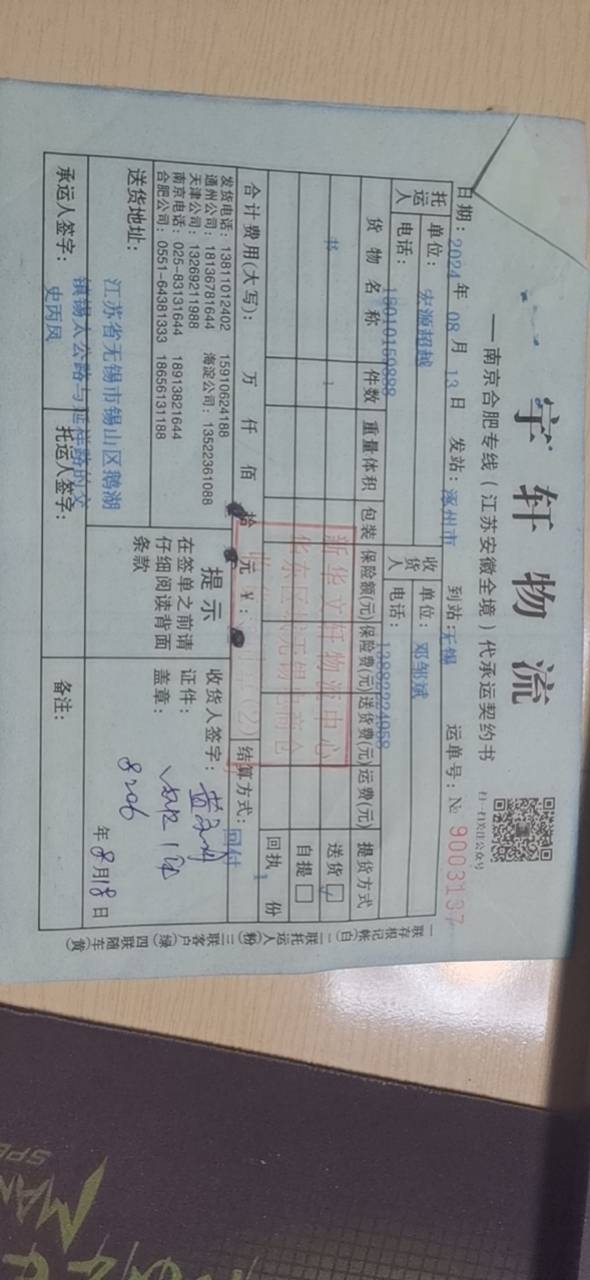 宇轩物流
一南京合肥专线（江苏安徽全境）代承运契约书
扫一扫关注公众号
日期：2024年 08月 13日 发站：涿州市 到站：无锡 运单号：№ 9003137
托运人 单位：宏源超越 收货人 单位：邓邹斌
电话：18010150888 电话：
货物名称 件数 重量体积 包装 保险额(元) 保险费(元) 送货费(元) 运费(元) 提货方式
书 1 送货
自提
回执 1 份
新华文轩物流中心
合计费用(大写)： 万 仟 佰 拾 元 ¥： 结算方式：回付
发货电话：13811012402 15910624188
通州公司：18136781644 海淀公司：13522361088
天津公司：13269211988
南京电话：025-83131644 18913821644
合肥公司：0551-64381333 18656131188
提示
在签单之前请
仔细阅读背面
条款
收货人签字：
证件：
盖章：
8206
年8月18日
送货地址：
江苏省无锡市锡山区鹅湖
镇锡太公路与延祥路的交
承运人签字：史丙凤 托运人签字： 备注：
一联存根记帐(白) 二联托运人(粉) 三联客户(绿) 四联随车(黄)